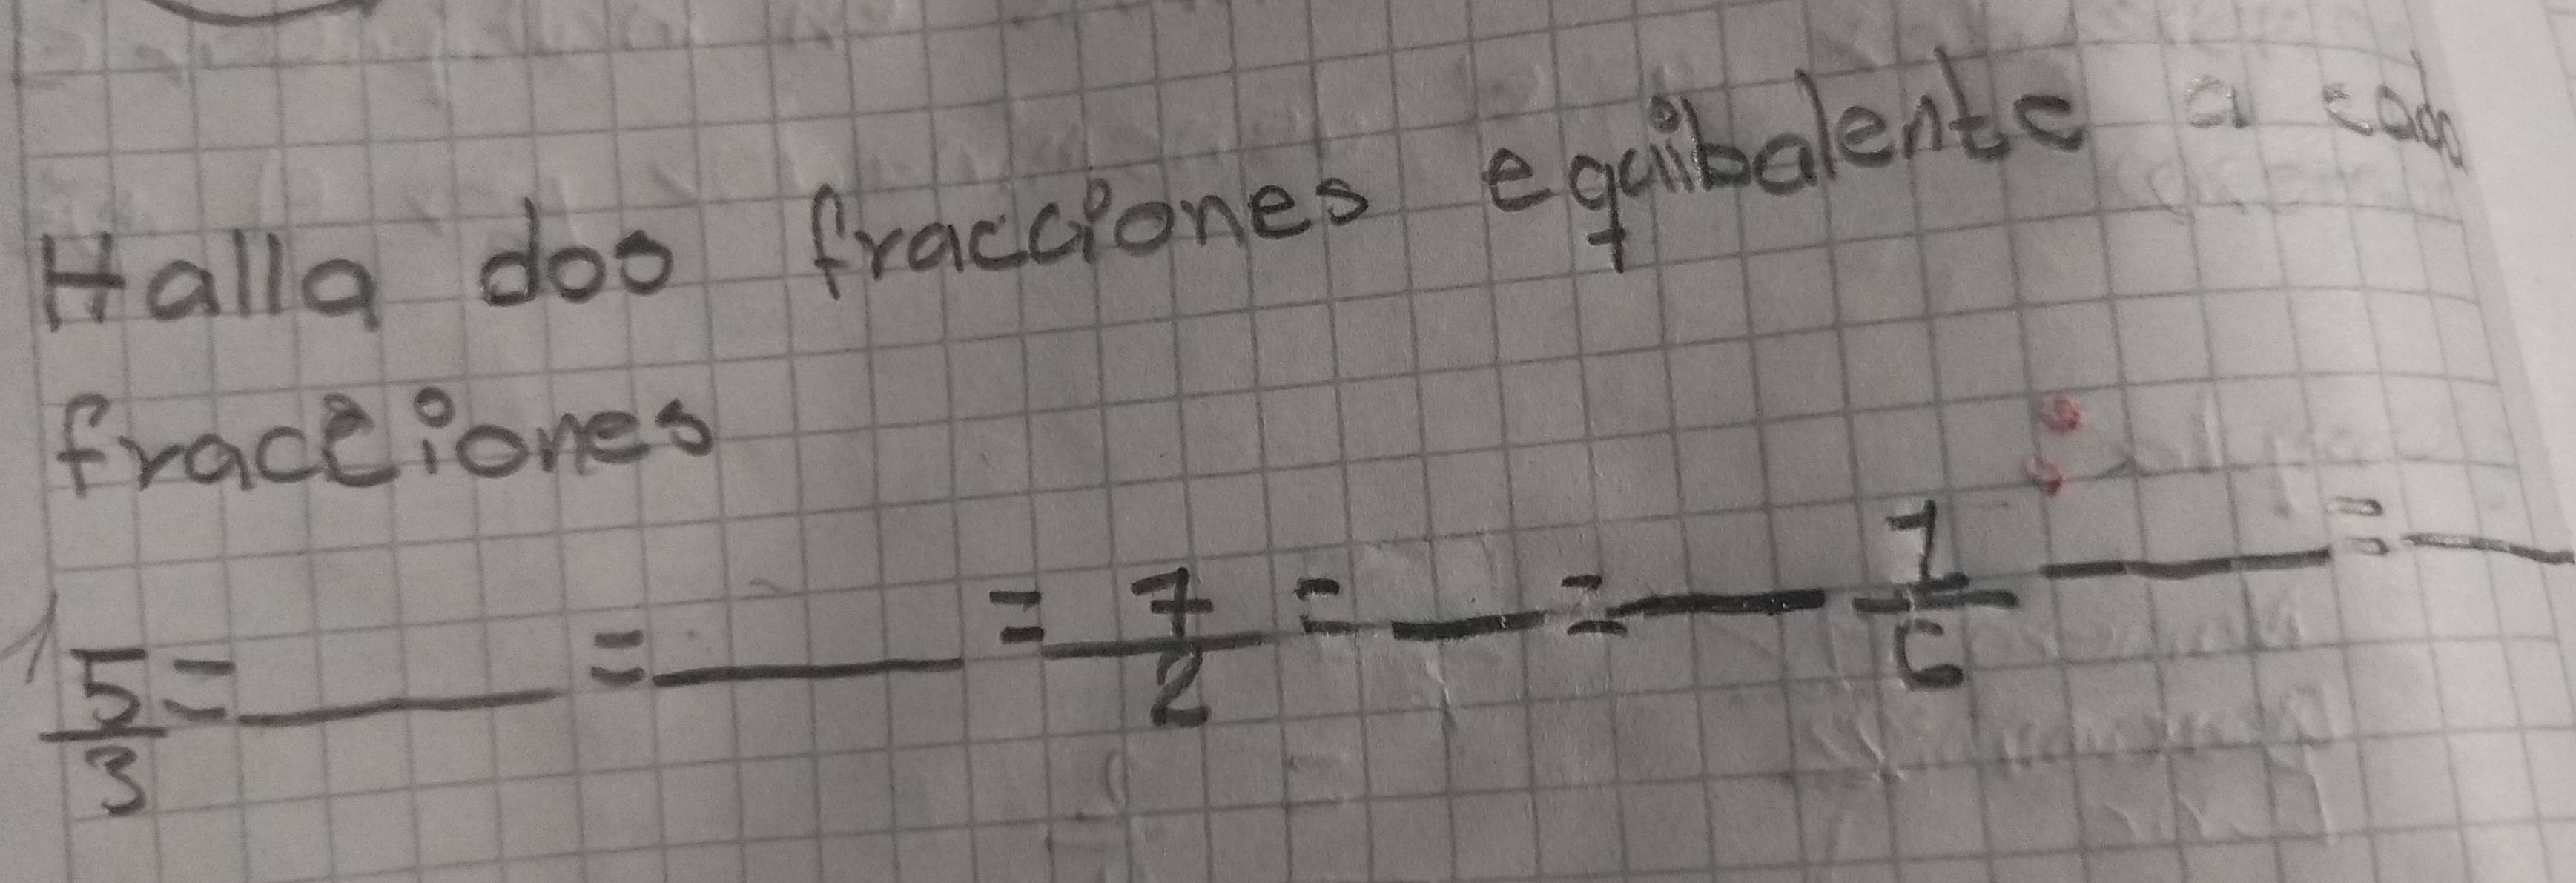 Halla dos fracciones equibalente a cada
fracciones
5/3 = ___ = ___ = 7/2 = ___ = ___ 1/6 ___ = ___